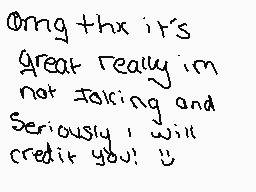 Omg thx it's
great really im
not joking and
Seriously i will
credit you! ü